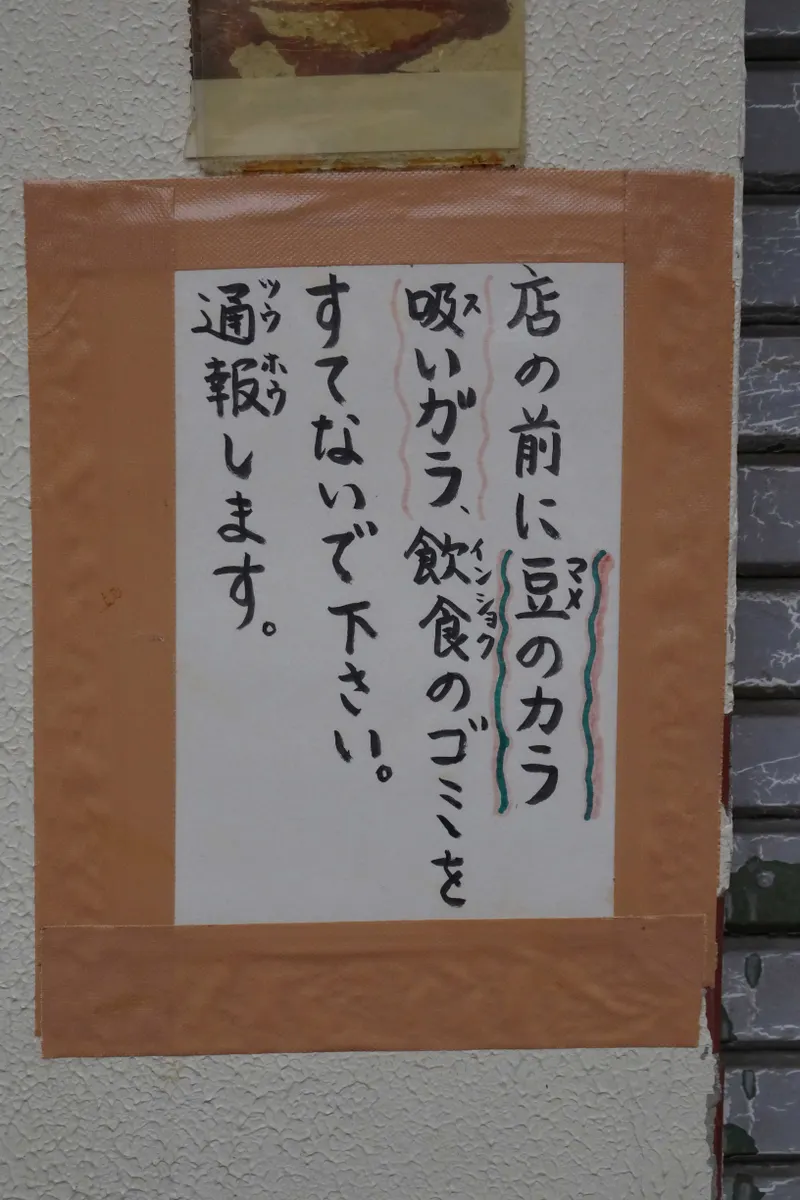 店の前に豆のカラ
吸いガラ、飲食のゴミを
すてないで下さい。
通報します。
マメ
ス
インショク
ツウホウ